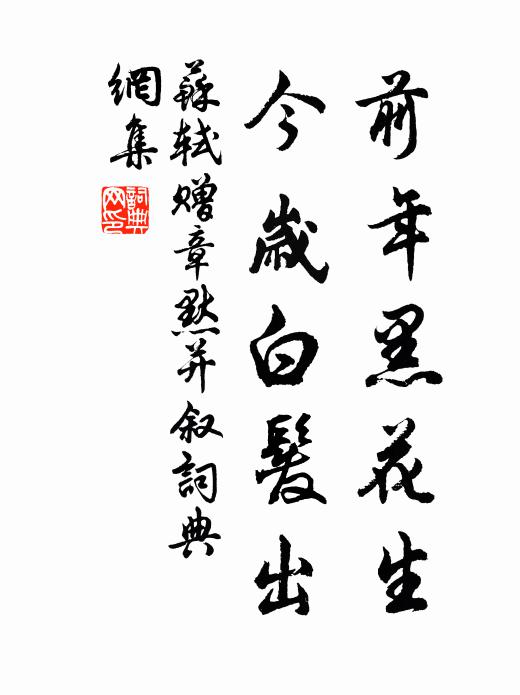 前年黑花生
今歲白髮出
蘇軾贈章默并叙詞典
網集
詞典网印